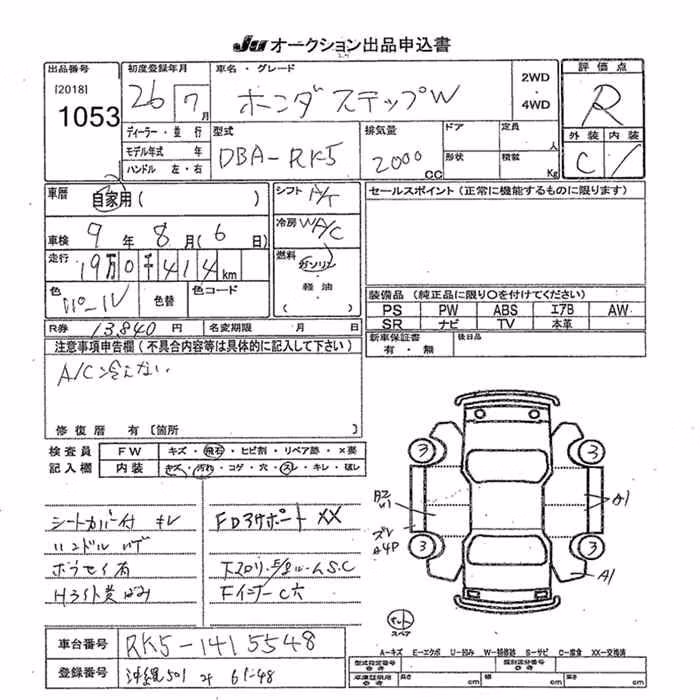 JU オークション出品申込書
出品番号
[2018]
1053
初度登録年月
26 7月
車名・グレード
ホンダ ステップW
2WD
・
4WD
評価点
R
外装 内装
C
ディーラー・並行
モデル年式 年
ハンドル 左・右
型式
DBA-RK5
排気量
2000 CC
ドア
形状
定員 人
積載 Kg
車歴
自家用( )
車検 9年8月(6日)
走行 19万0千414km
色 パール
色替
色コード
R券 13,840円
名変期限 月 日
シフト A/T
冷房 W A/C
燃料
ガソリン
軽油
( )
セールスポイント(正常に機能するものに限ります)
装備品(純正品に限り〇を付けてください)
PS PW ABS エアB AW
SR ナビ TV 本革
新車保証書
有・無
後日品
注意事項申告欄(不具合内容等は具体的に記入して下さい)
A/C冷えない
修復歴 有〔箇所
検査員
記入欄
FW キズ・飛石・ヒビ割・リペア跡・×要
内装 キズ・汚れ・コゲ・穴・スレ・キレ・破レ
シートカバー付 キレ
ハンドル ハゲ
H ライト黄ばみ
FDアサポート XX
3 3
3 3
A1
A1
スペア
A-キズ E-エクボ U-凹み W-補修跡 S-サビ C-腐食 XX-交換済
車台番号 RK5-1415548
登録番号 沖縄501 61-48
型式指定番号
類別区分番号
長さ cm
幅 cm
高さ cm